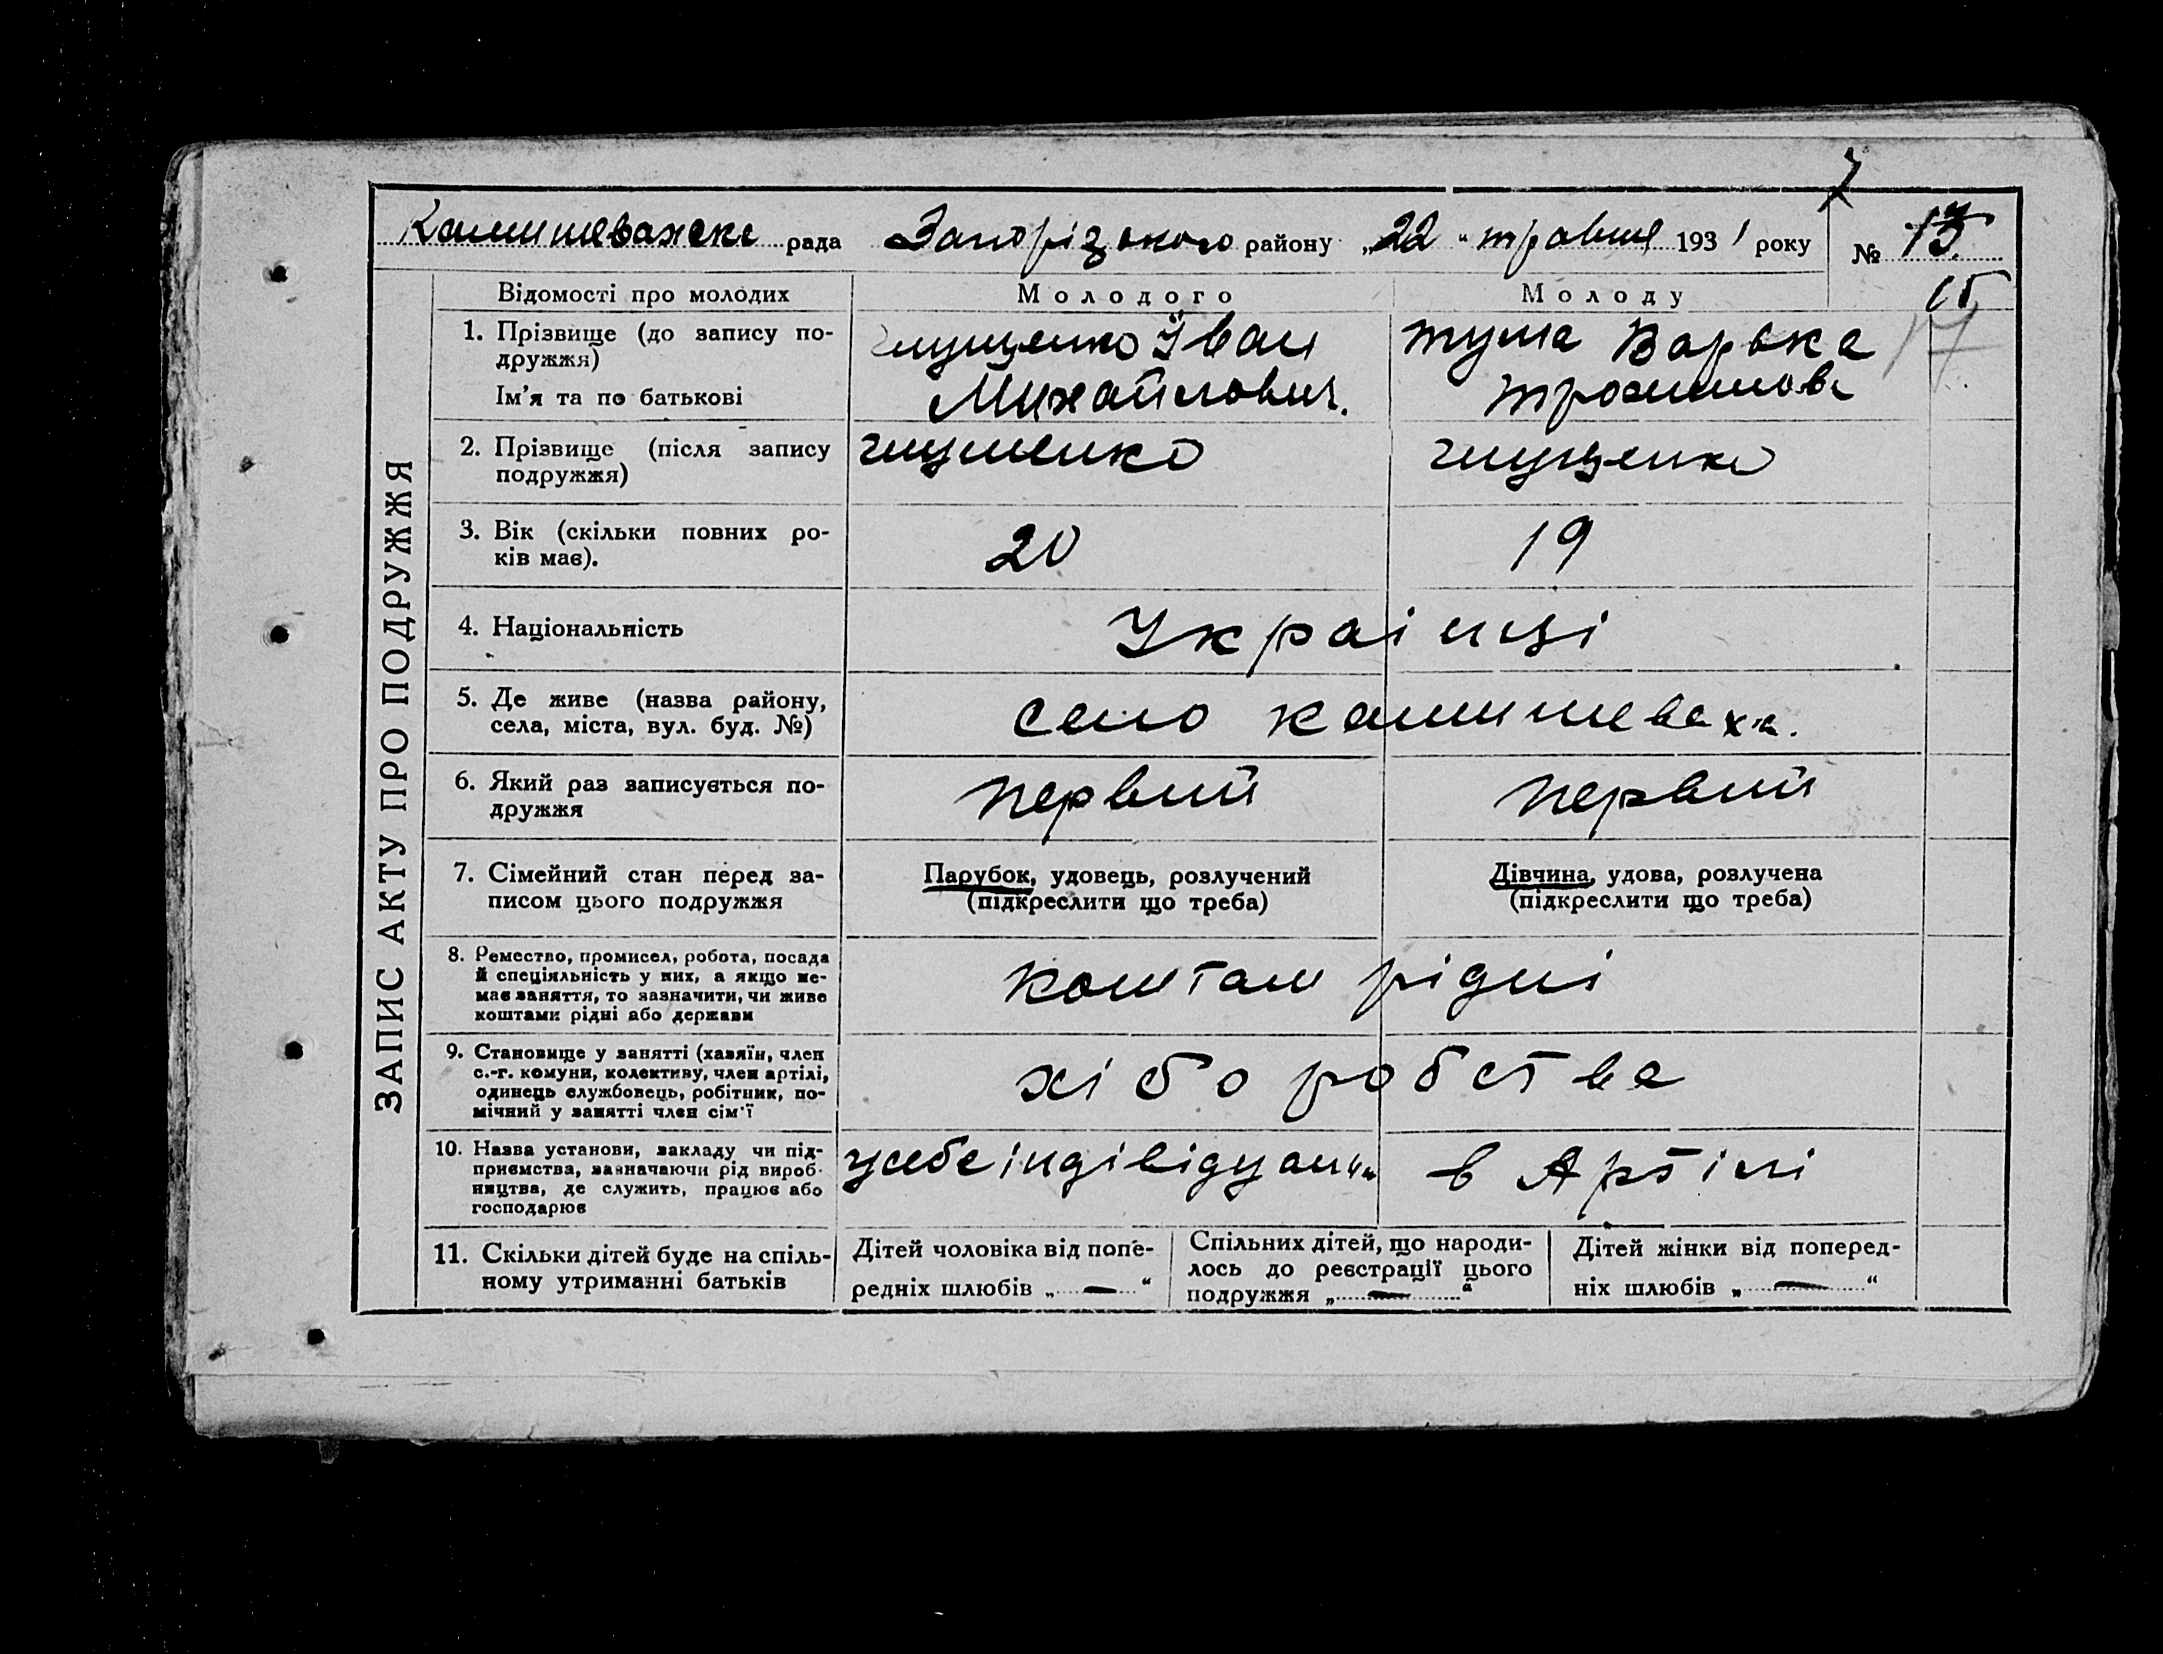 7
Камишеважска рада Запорізького району „22“ травня 1931 року № 13
15
17
ЗАПИС АКТУ ПРО ПОДРУЖЖЯ
Відомості про молодих Молодого Молоду
1. Прізвище (до запису по-
дружжя)
Ім'я та по батькові
Глущенко Іван
Михайлович.
Тума Варька
Трохимова
2. Прізвище (після запису
подружжя)
глущенко глущенко
3. Вік (скільки повних ро-
ків має).
20 19
4. Національність
Українці
5. Де живе (назва району,
села, міста, вул. буд. №)
село камишеваха.
6. Який раз записується по-
дружжя
первий первий
7. Сімейний стан перед за-
писом цього подружжя
Парубок, удовець, розлучений
(підкреслити що треба)
Дівчина, удова, розлучена
(підкреслити що треба)
8. Ремество, промисел, робота, посада
й спеціяльність у них, а якщо не-
має заняття, то зазначити, чи живе
коштами рідні або держави
коштам рідні
9. Становище у занятті (хазяїн, член
с.-г. комуни, колективу, член артілі,
одинець службовець, робітник, по-
мічний у занятті член сім'ї
хіборобства
10. Назва установи, закладу чи під-
приємства, зазначаючи рід вироб-
ництва, де служить, працює або
господарює
усебе в Артілі
11. Скільки дітей буде на спіль-
ному утриманні батьків
Дітей чоловіка від попе-
редніх шлюбів „ — “
Спільних дітей, що народи-
лось до реєстрації цього
подружжя „ — “
Дітей жінки від поперед-
ніх шлюбів „ — “